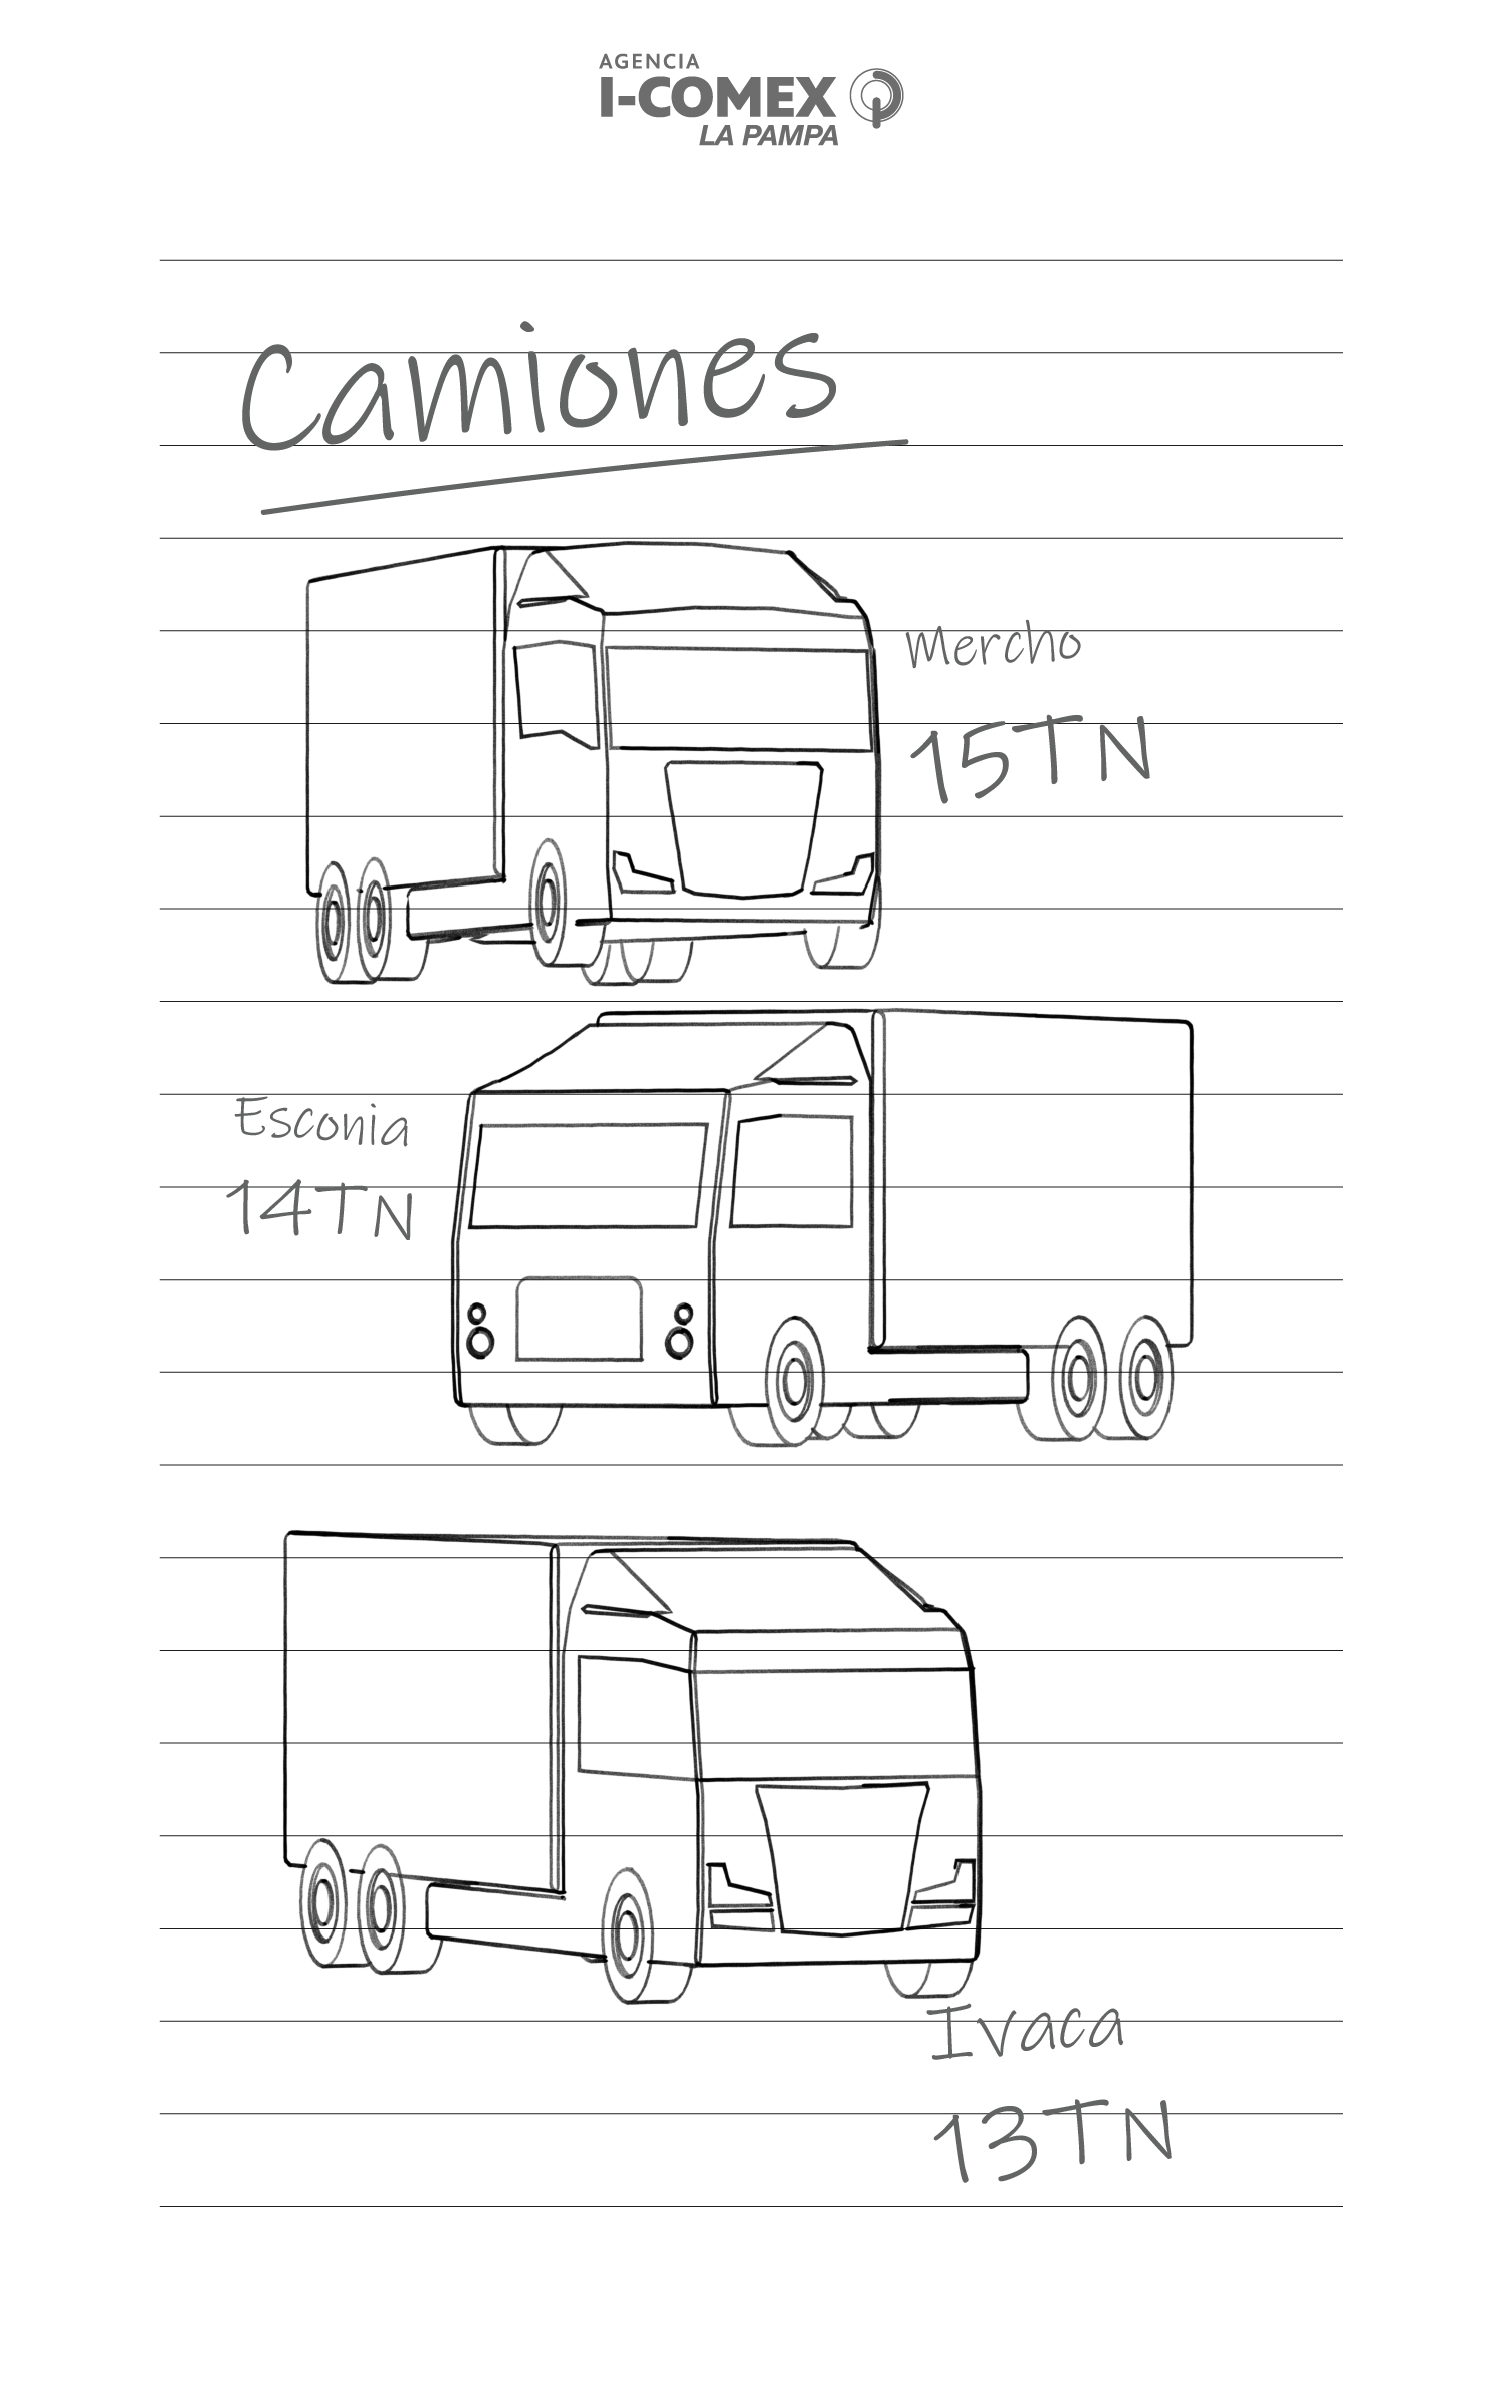 AGENCIA
I-COMEX
LA PAMPA
Camiones
Mercho
15TN
Esconia
14TN
Ivaca
13TN